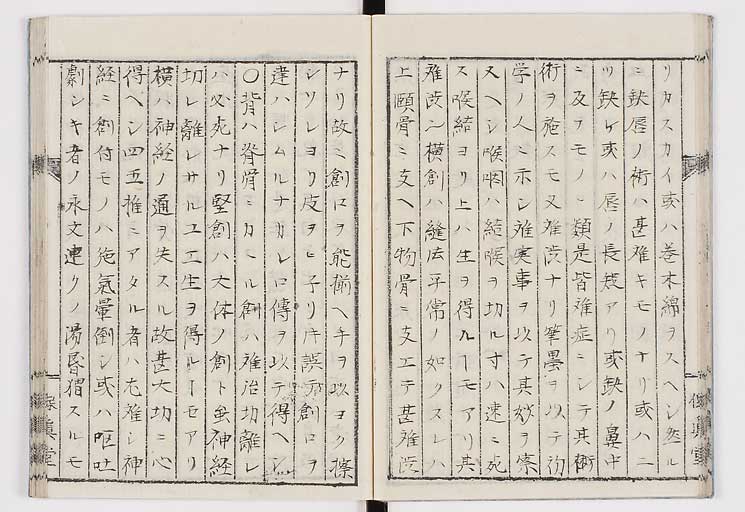 リカスカイ或ハ巻木綿ヲスヘシ然ル
ニ缺唇ノ術ハ甚难キモノナリ或ハニ
ツ缺ケ或ハ唇ノ長短アリ或缺ノ鼻中
ニ及フモノノ類是皆难症ニシテ其術
術ヲ施スモ又难渋ナリ筆墨ヲ以テ
学ノ人ニ示シ难実事ヲ以テ其妙ヲ察
スヘシ喉咽ハ結喉ヲ切ル寸ハ速ニ死
ス喉結ヨリ上ハ生ヲ得ルーモアリ其
难渋ノ横創ハ縫法平常ノ如クスレハ
上頤骨ニ支ヘ下物骨ニ支エテ甚难渋
ナリ故ニ創口ヲ能揃ヘ手ヲ以ヨク擦
シソレヨリ皮ヲヒ子リ誤テ創口ヲ
違ハシムルナカレ口傳ヲ以テ得ヘシ
〇背ハ脊骨ニカヽル創ハ难治切離レ
ハ必死ナリ堅創ハ大体ノ創ト虽神経
切レ離レサルユエ生ヲ得ルーモアリ
横ハ神経ノ通ヲ失スル故甚大切ニ心
得ヘシ四五椎ニアタル者ハ尤难シ神
経ニ創付モノハ施氣暈倒シ或ハ嘔吐
劇シキ者ノ永文連クノ湯昏冒スルモ
保真堂
保真堂